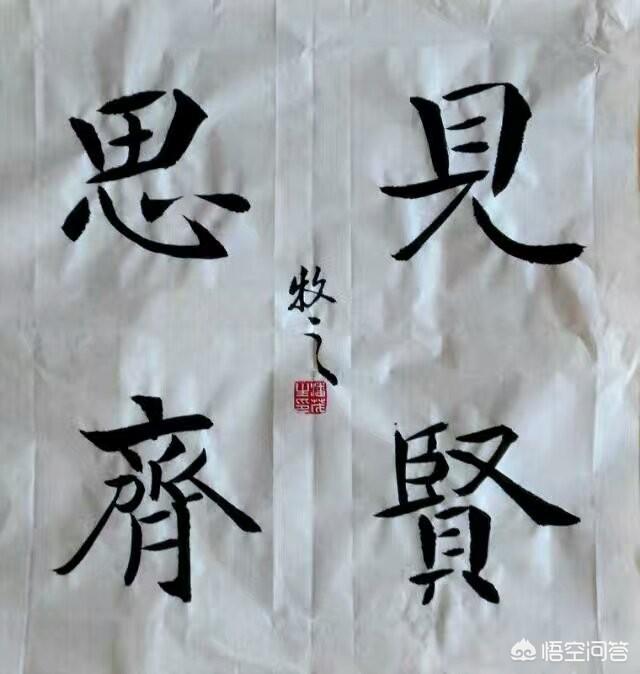 見賢
思齊
牧之
悟空问答